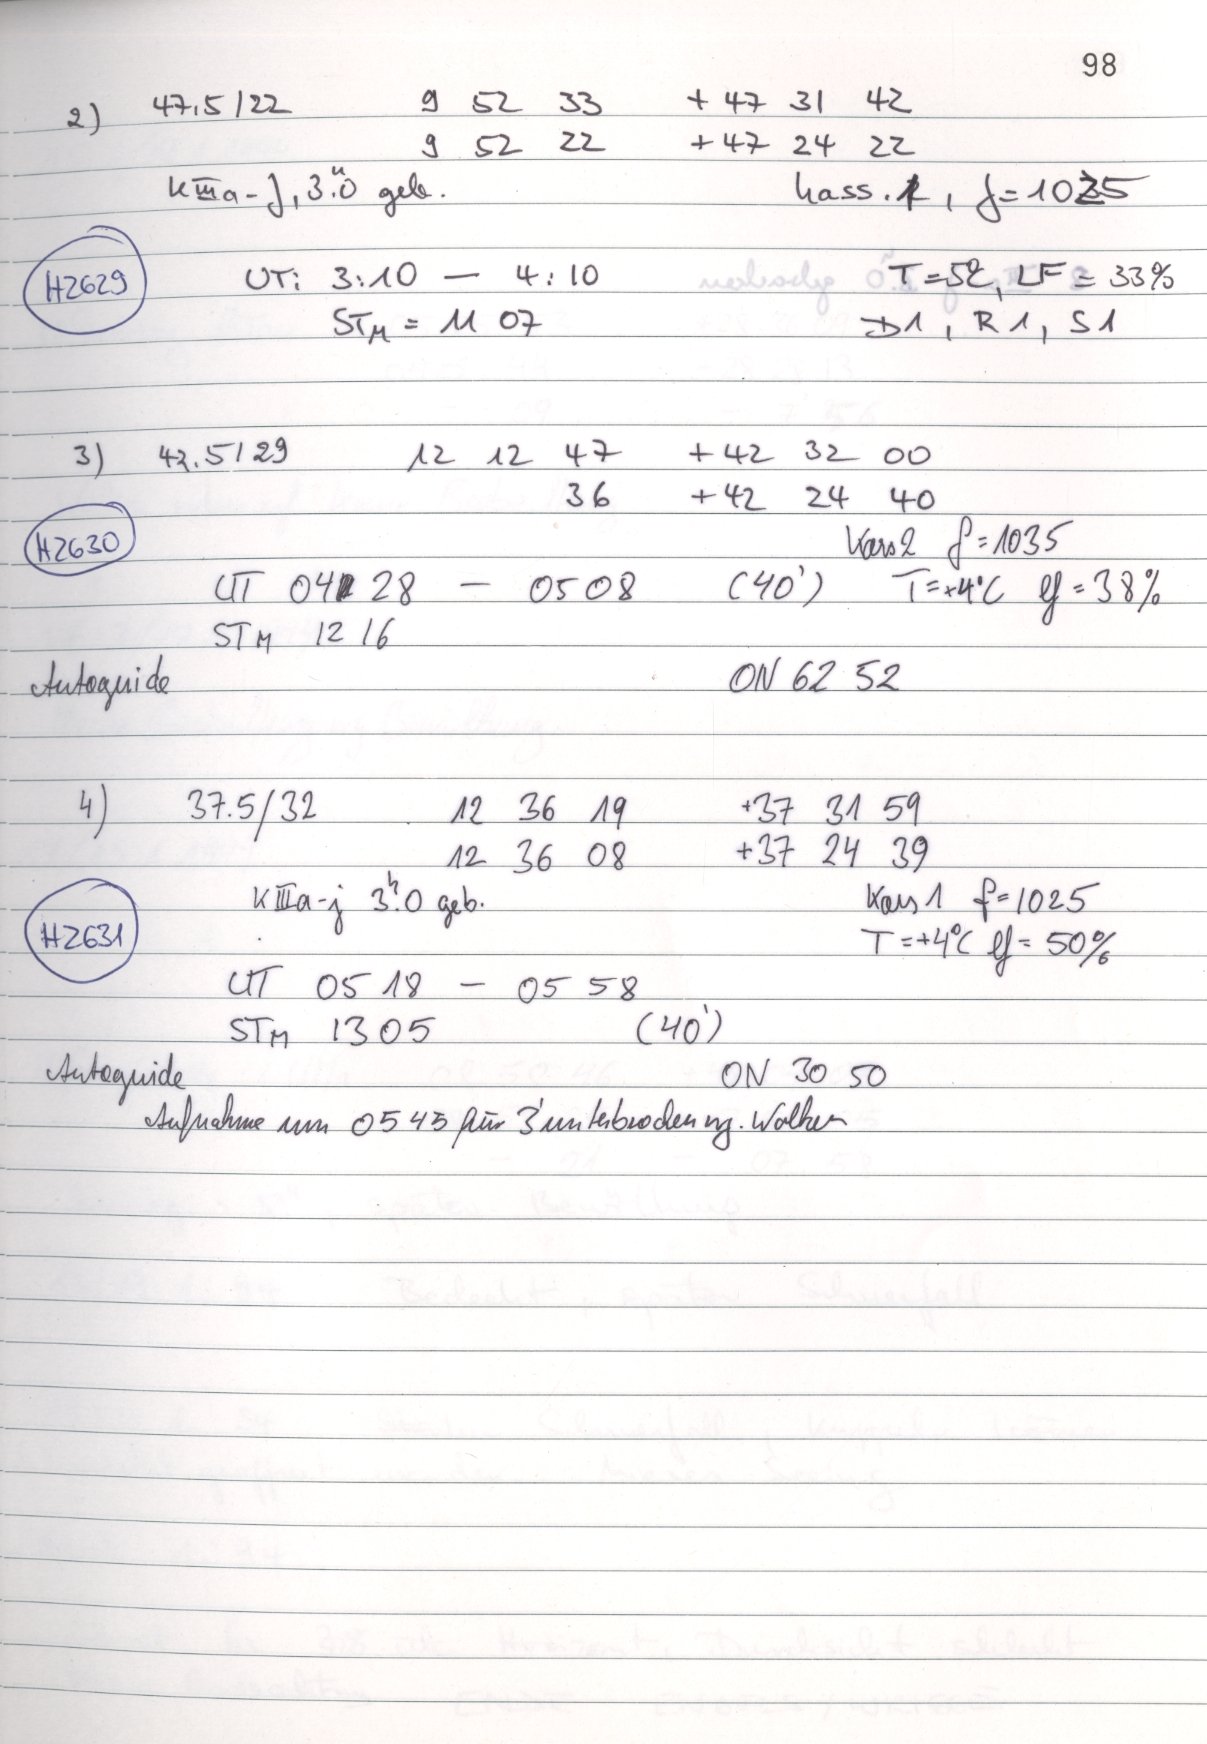 98
2) 47.5/22 9 52 33 +47 31 42
9 52 22 +47 24 22
KIIIa-J, 3.h0 geb. Kass. 1, f=1025
H2629 UT: 3:10 — 4:10 T=5°, LF=33%
STM = 11 07 D1, R1, S1
3) 42.5/29 12 12 47 +42 32 00
36 +42 24 40
H2630 Kass 2 f=1035
UT 04 28 — 05 08 (40') T=+4°C lf=38%
STM 12 16
Autoguide ON 62 52
4) 37.5/32 12 36 19 +37 31 59
12 36 08 +37 24 39
KIIIa-j 3.h0 geb. Kass 1 f=1025
H2631 T=+4°C lf=50%
UT 05 18 — 05 58
STM 13 05 (40')
Autoguide ON 30 50
Aufnahme um 05 45 für 3' unterbrochen wg. Wolken